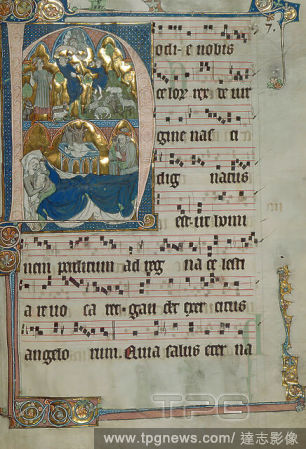 7.
odi-e nobis
celor rex de vir
gine nas ci
dig natus
est ut homi
nem perditum ad reg na ce lesti
a re vo ca ret gau det exer citus
angelo rum. Quia salus eter na
TPG
www.tpgnews.com/ 達志影像